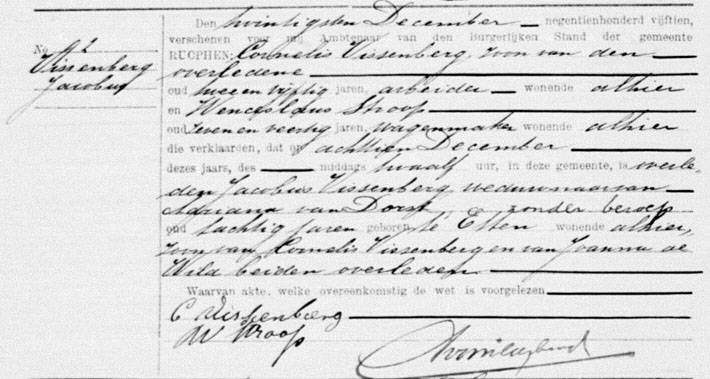 Den twintigsten December negentienhonderd vijftien,
verschenen voor mij Ambtenaar van den Burgerlijken Stand der gemeente
No 92
Vissenberg
Jacobus
RUCPHEN: Cornelis Vissenberg, zoon van den
overledene
oud twee en vijftig jaren, arbeider wonende alhier
en Wenceslaus Stroop
oud zeven en veertig jaren, wagenmaker wonende alhier
die verklaarden, dat op achttien December
dezes jaars, des middags twaalf uur, in deze gemeente, is overle-
den Jacobus Vissenberg, weduwnaar van
Adriana van Dorst, zonder beroep
oud tachtig jaren geboren te Etten wonende alhier,
zoon van Cornelis Vissenberg en van Joanna de
Wild beiden overleden
Waarvan akte, welke overeenkomstig de wet is voorgelezen
C Vissenberg
W Stroop